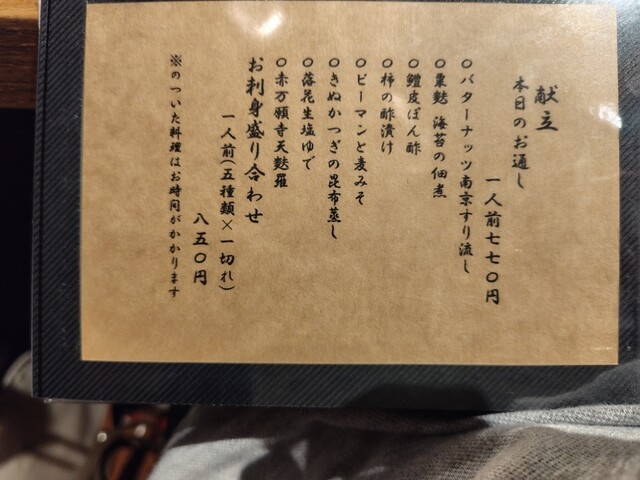 献立
本日のお通し
一人前七七〇円
○バターナッツ南京すり流し
○粟麩 海苔の佃煮
○鱧皮ぽん酢
○柿の酢漬け
○ピーマンと麦みそ
○きぬかつぎの昆布蒸し
○落花生塩ゆで
○赤万願寺天麩羅
お刺身盛り合わせ
一人前(五種類×一切れ)
八五〇円
※のついた料理はお時間がかかります